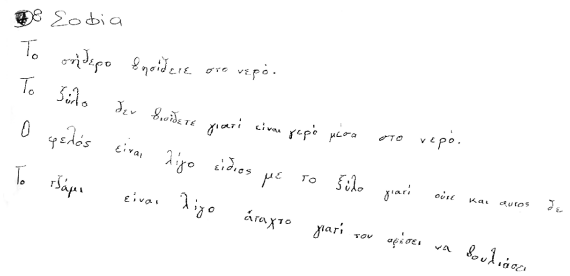 8 Σοφία
Το σήδερο βησίδειε στο νερό.
Το ξύλο δεν βισίδετε γιατί είναι γερό μέσα στο νερό.
Ο φελός είναι λίγο είδιος με το ξύλο γιατί ούτε και αυτος δε
Το τζάμι είναι λίγο άταχτο γιατί του αρέσει να βουλιάσει